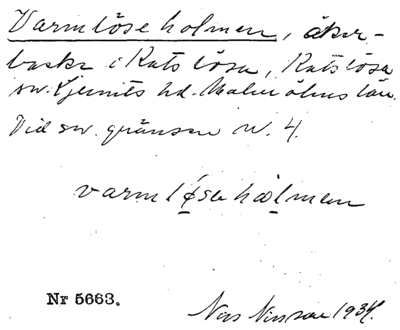 Varmlöse holmen, åker-
backe i Katslösa, Katslösa
sn. Ljunits hd. Malmöhus län.
Vid sv. gränsen N. 4.
varmløsehålmen
Nr 5663.
Nils Nilsson 1934.